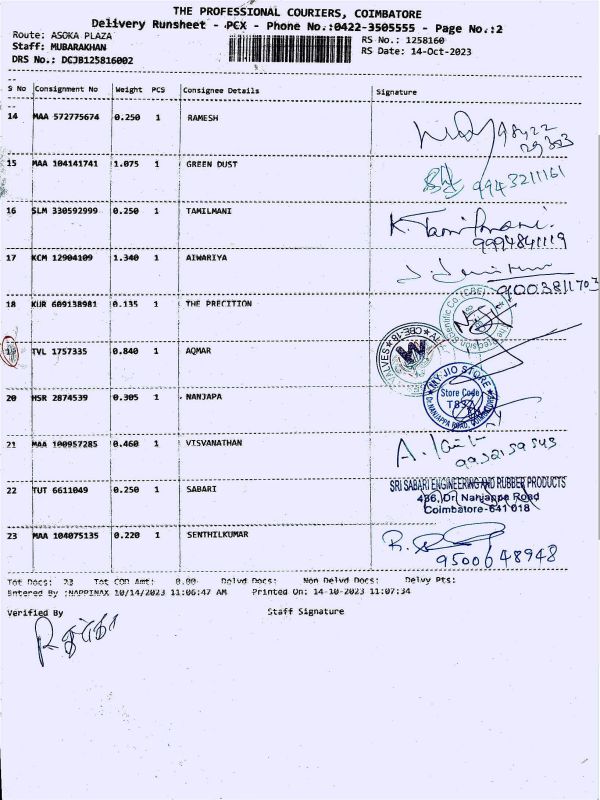 THE PROFESSIONAL COURIERS, COIMBATORE
Delivery Runsheet - PCX - Phone No.:0422-3505555 - Page No.:2
Route: ASOKA PLAZA RS No.: 1258160
Staff: MUBARAKHAN RS Date: 14-Oct-2023
DRS No.: DCJB125816002
S No Consignment No Weight PCS Consignee Details Signature
14 MAA 572775674 0.250 1 RAMESH
15 MAA 104141741 1.075 1 GREEN DUST 9943211161
16 SLM 330592999 0.250 1 TAMILMANI K. Tamilmani.
9994841119
17 KCM 12904109 1.340 1 AIWARIYA
9003811703
18 KUR 609138981 0.135 1 THE PRECITION
19 TVL 1757335 0.840 1 AQMAR
VALVES ★ CBE-18 ★
MY JIO STORE
Store Code
20 HSR 2874539 0.305 1 NANJAPA
21 MAA 100957285 0.460 1 VISVANATHAN
22 TUT 6611049 0.250 1 SABARI SRI SABARI ENGINEERING AND RUBBER PRODUCTS
436, Dr. Nanjappa Road
Coimbatore-641 018
23 MAA 104075135 0.220 1 SENTHILKUMAR
9500648948
Tot Docs: 23 Tot COD Amt: 0.00 Delvd Docs: Non Delvd Docs: Delvy Pts:
Entered By :NAPPINAX 10/14/2023 11:06:47 AM Printed On: 14-10-2023 11:07:34
Verified By Staff Signature